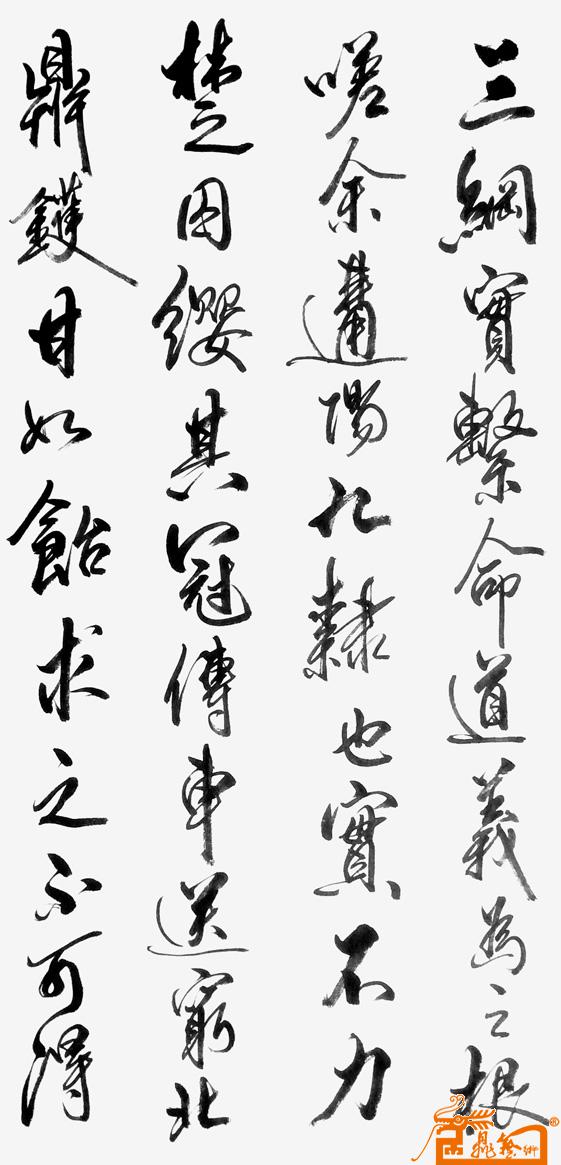 三綱實繫命道義為之根
嗟余遘陽九隸也實不力
楚囚纓其冠傳車送窮北
鼎鑊甘如飴求之不可得